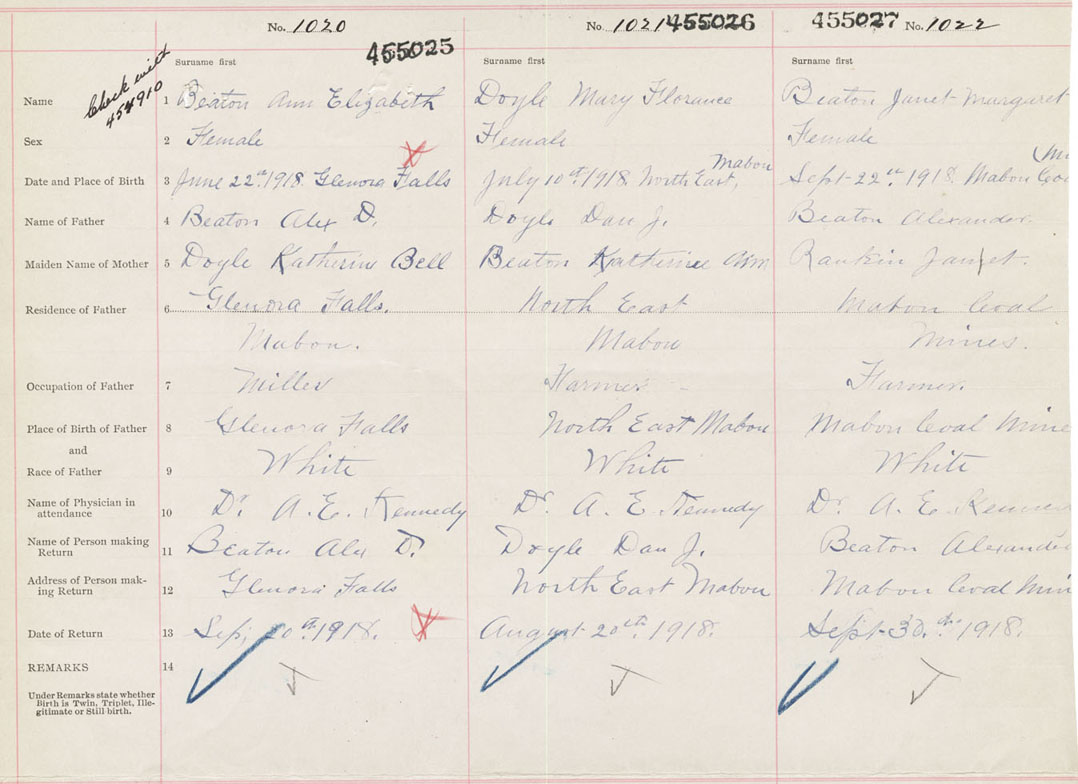 No. 1020 No. 1021 455026 455027 No. 1022
455025
Check with
454910
Surname first Surname first Surname first
Name 1 Beaton Ann Elizabeth Doyle Mary Florance Beaton Janet Margaret
Sex 2 Female Female Female
Date and Place of Birth 3 June 22nd 1918 Glenora Falls July 10th 1918 North East, Mabou Sept 22nd 1918 Mabou Coal
Name of Father 4 Beaton Alex D. Doyle Dan J. Beaton Alexander
Maiden Name of Mother 5 Doyle Katherine Bell Beaton Katherine Ann Rankin Janet.
Residence of Father 6 Glenora Falls. North East Mabou Coal
Mabou. Mabou Mines.
Occupation of Father 7 Miller Farmer Farmer.
Place of Birth of Father 8 Glenora Falls North East Mabou Mabou Coal Mine
and
Race of Father 9 White White White
Name of Physician in
attendance 10 Dr. A. E. Kennedy Dr. A. E. Kennedy Dr. A. E. Kenned
Name of Person making
Return 11 Beaton Alex D. Doyle Dan J. Beaton Alexander
Address of Person mak-
ing Return 12 Glenora Falls North East Mabou Mabou Coal Min
Date of Return 13 Sep, 20th 1918. August 20th, 1918. Sept 30th 1918.
REMARKS 14
Under Remarks state whether
Birth is Twin, Triplet, Ille-
gitimate or Still-birth.